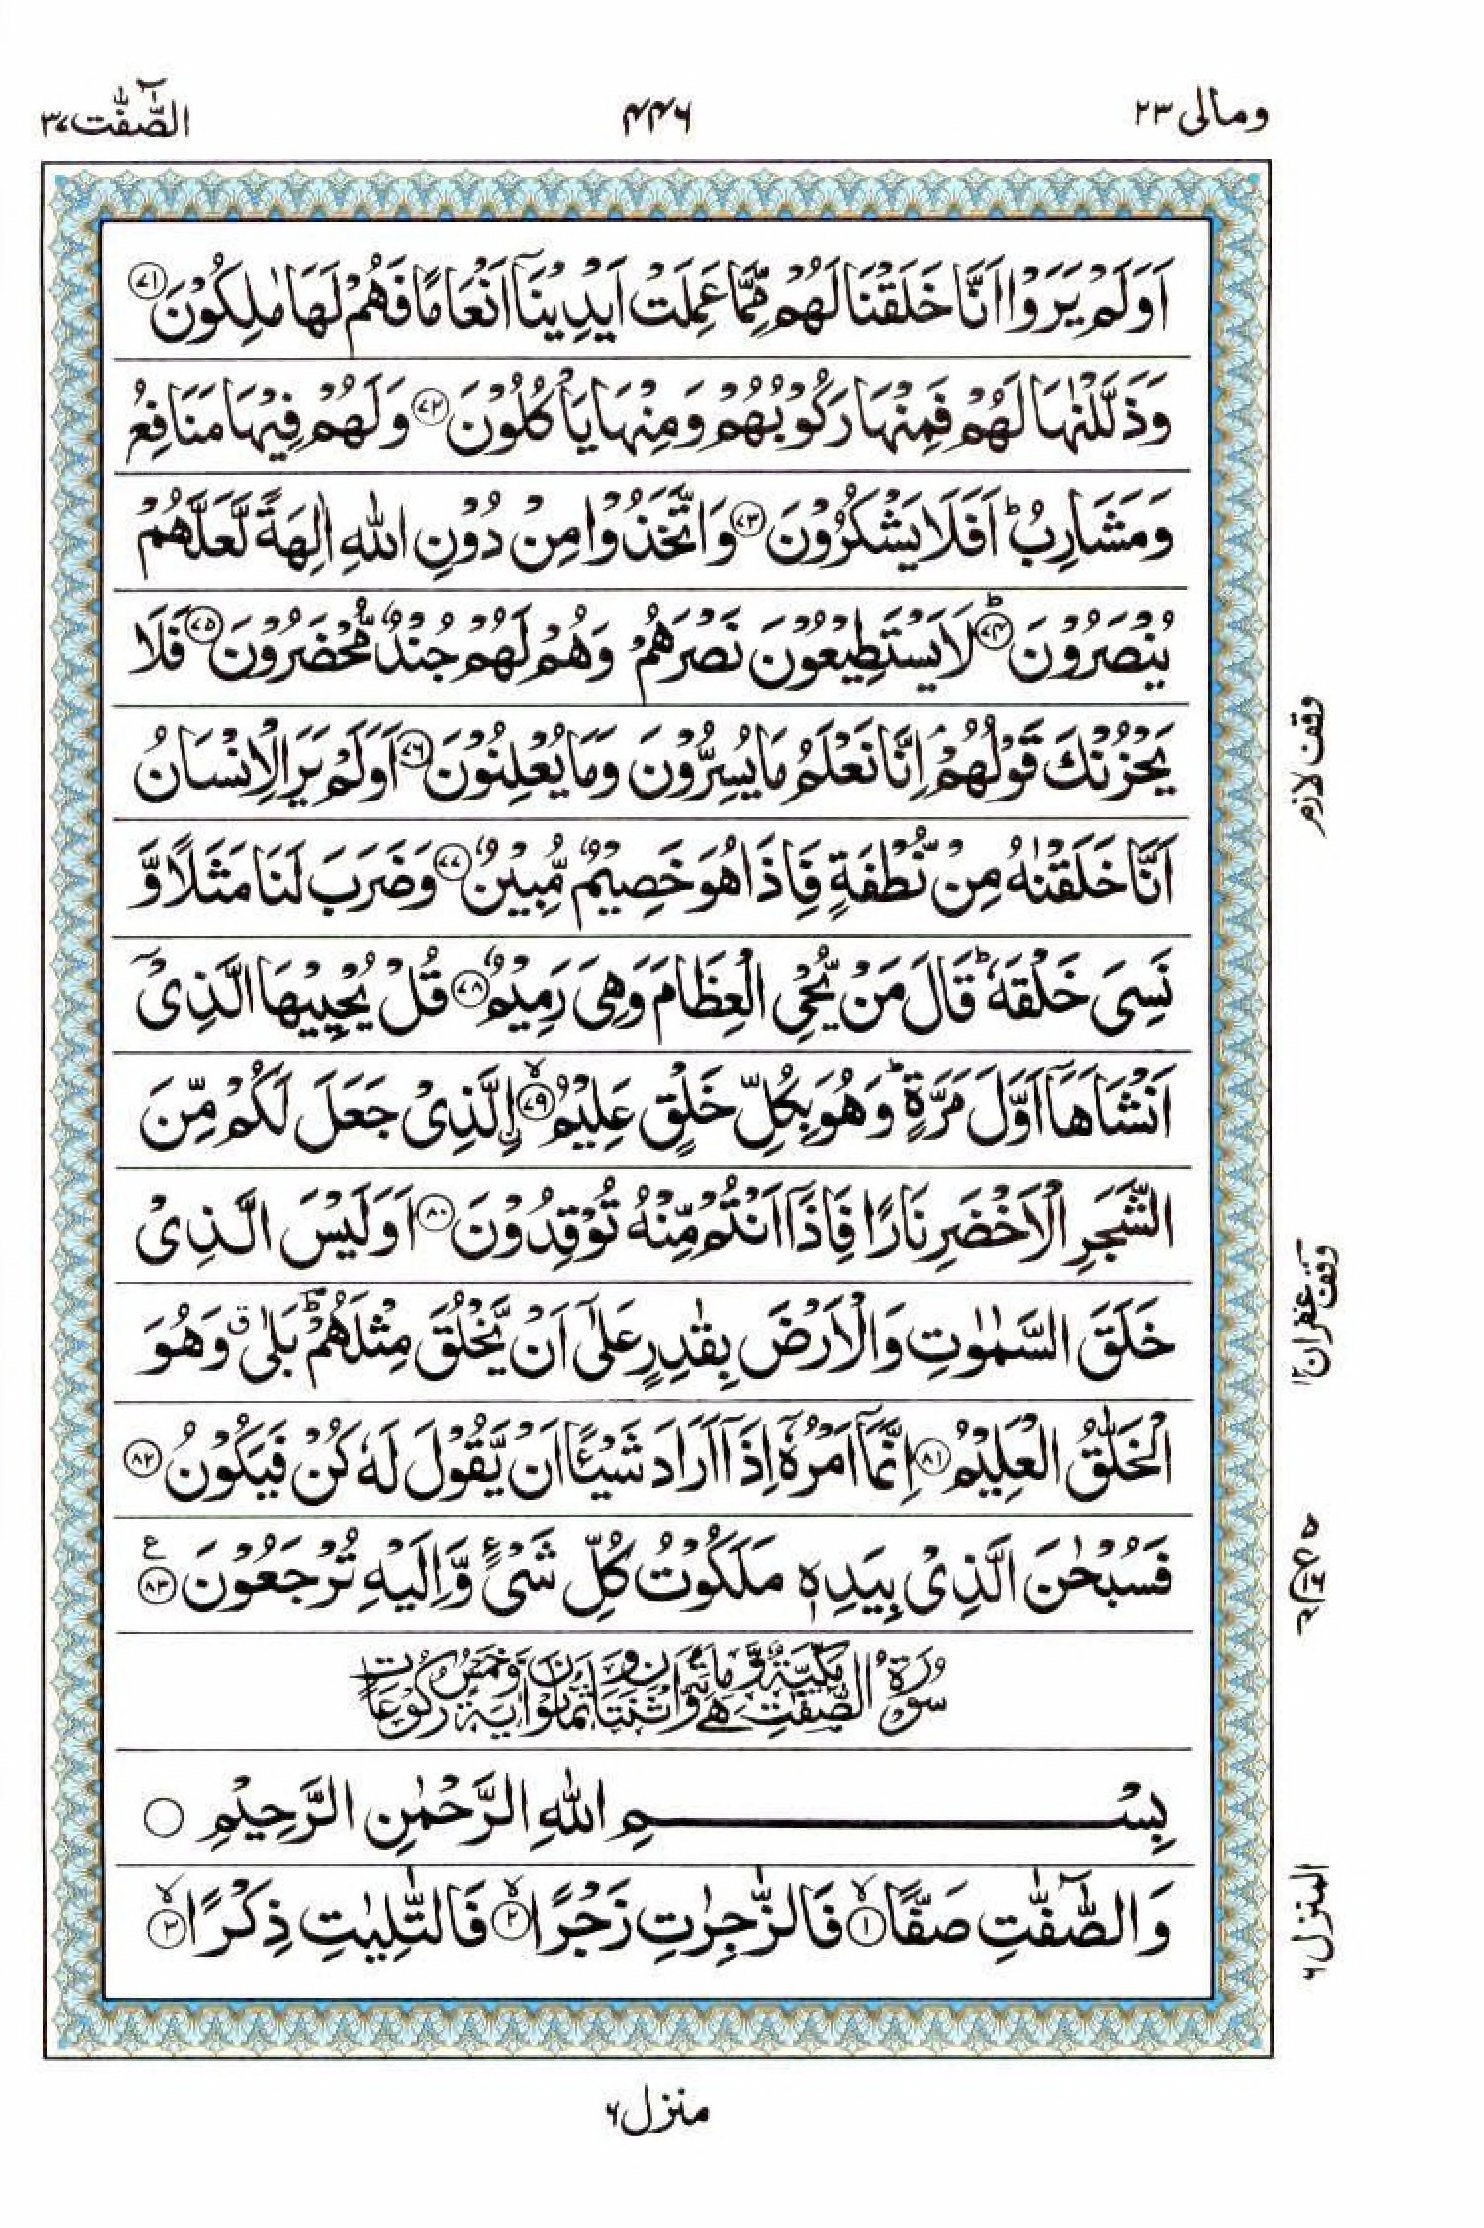 ومالی ۲۳
۴۴۶
الصّٰٓفّٰت ۳۷
اَوَلَمْ يَرَوْا اَنَّا خَلَقْنَا لَهُمْ مِّمَّا عَمِلَتْ اَيْدِيْنَآ اَنْعَامًا فَهُمْ لَهَا مٰلِكُوْنَ ۷۱
وَذَلَّلْنٰهَا لَهُمْ فَمِنْهَا رَكُوْبُهُمْ وَمِنْهَا يَاْكُلُوْنَ ۷۲ وَلَهُمْ فِيْهَا مَنَافِعُ
وَمَشَارِبُ ؕ اَفَلَا يَشْكُرُوْنَ ۷۳ وَاتَّخَذُوْا مِنْ دُوْنِ اللّٰهِ اٰلِهَةً لَّعَلَّهُمْ
يُنْصَرُوْنَ ؕ ۷۴ لَا يَسْتَطِيْعُوْنَ نَصْرَهُمْ وَهُمْ لَهُمْ جُنْدٌ مُّحْضَرُوْنَ ۷۵ فَلَا
يَحْزُنْكَ قَوْلُهُمْ ۘ اِنَّا نَعْلَمُ مَا يُسِرُّوْنَ وَمَا يُعْلِنُوْنَ ۷۶ اَوَلَمْ يَرَ الْاِنْسَانُ
اَنَّا خَلَقْنٰهُ مِنْ نُّطْفَةٍ فَاِذَا هُوَ خَصِيْمٌ مُّبِيْنٌ ۷۷ وَضَرَبَ لَنَا مَثَلًا وَّ
نَسِیَ خَلْقَهٗ ؕ قَالَ مَنْ يُّحْیِ الْعِظَامَ وَهِیَ رَمِيْمٌ ۷۸ قُلْ يُحْيِيْهَا الَّذِیْٓ
اَنْشَاَهَآ اَوَّلَ مَرَّةٍ ؕ وَهُوَ بِكُلِّ خَلْقٍ عَلِيْمُ ۙ ۷۹ اِۨلَّذِیْ جَعَلَ لَكُمْ مِّنَ
الشَّجَرِ الْاَخْضَرِ نَارًا فَاِذَآ اَنْتُمْ مِّنْهُ تُوْقِدُوْنَ ۸۰ اَوَلَيْسَ الَّذِیْ
خَلَقَ السَّمٰوٰتِ وَالْاَرْضَ بِقٰدِرٍ عَلٰٓی اَنْ يَّخْلُقَ مِثْلَهُمْ ؕ بَلٰی ۗ وَهُوَ
الْخَلّٰقُ الْعَلِيْمُ ۸۱ اِنَّمَآ اَمْرُهٗٓ اِذَآ اَرَادَ شَيْـًٔا اَنْ يَّقُوْلَ لَهٗ كُنْ فَيَكُوْنُ ۸۲
فَسُبْحٰنَ الَّذِیْ بِيَدِهٖ مَلَكُوْتُ كُلِّ شَیْءٍ وَّاِلَيْهِ تُرْجَعُوْنَ ۸۳ ع
سُوْرَةُ الصّٰفّٰتِ مَكِّيَّةٌ وَّهِیَ مِائَةٌ وَّاثْنَتَانِ وَثَمَانُوْنَ اٰيَةً وَّخَمْسُ رُكُوْعَاتٍ
بِسْمِ اللّٰهِ الرَّحْمٰنِ الرَّحِيْمِ
وَالصّٰٓفّٰتِ صَفًّا ۙ ۱ فَالزّٰجِرٰتِ زَجْرًا ۙ ۲ فَالتّٰلِيٰتِ ذِكْرًا ۙ ۳
وقف لازم
وقف غفران ۱۲
المنزل ۶
منزل ۶